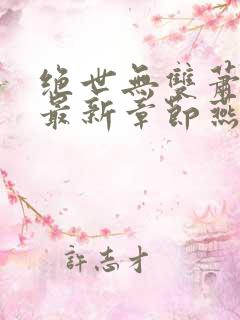 绝世無雙蕭
最新章節燕
許志才